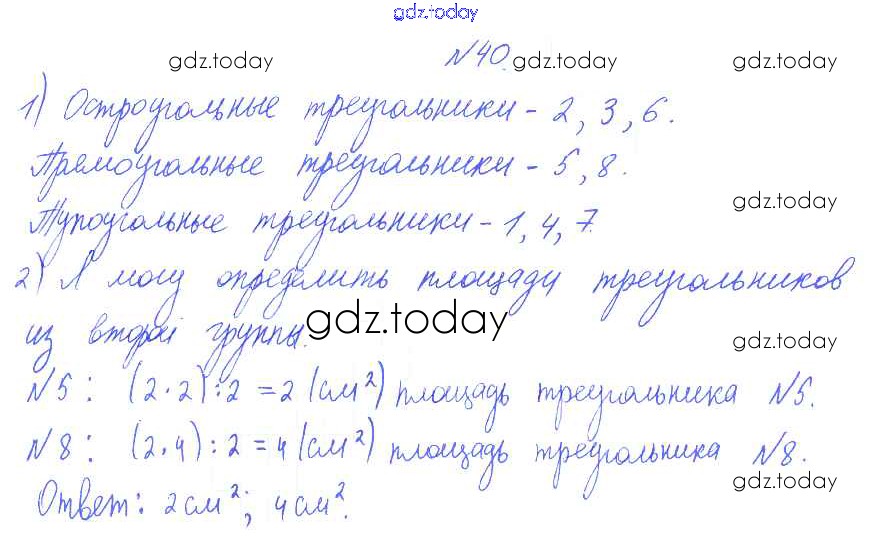 gdz.today
№40.
gdz.today gdz.today gdz.today
1) Остроугольные треугольники - 2, 3, 6.
Прямоугольные треугольники - 5, 8.
gdz.today
Тупоугольные треугольники - 1, 4, 7.
2) Я могу определить площади треугольников
из второй группы.
gdz.today
gdz.today
№5: (2·2):2=2 (см²) площадь треугольника №5.
№8: (2·4):2=4 (см²) площадь треугольника №8.
gdz.today
Ответ: 2 см²; 4 см².